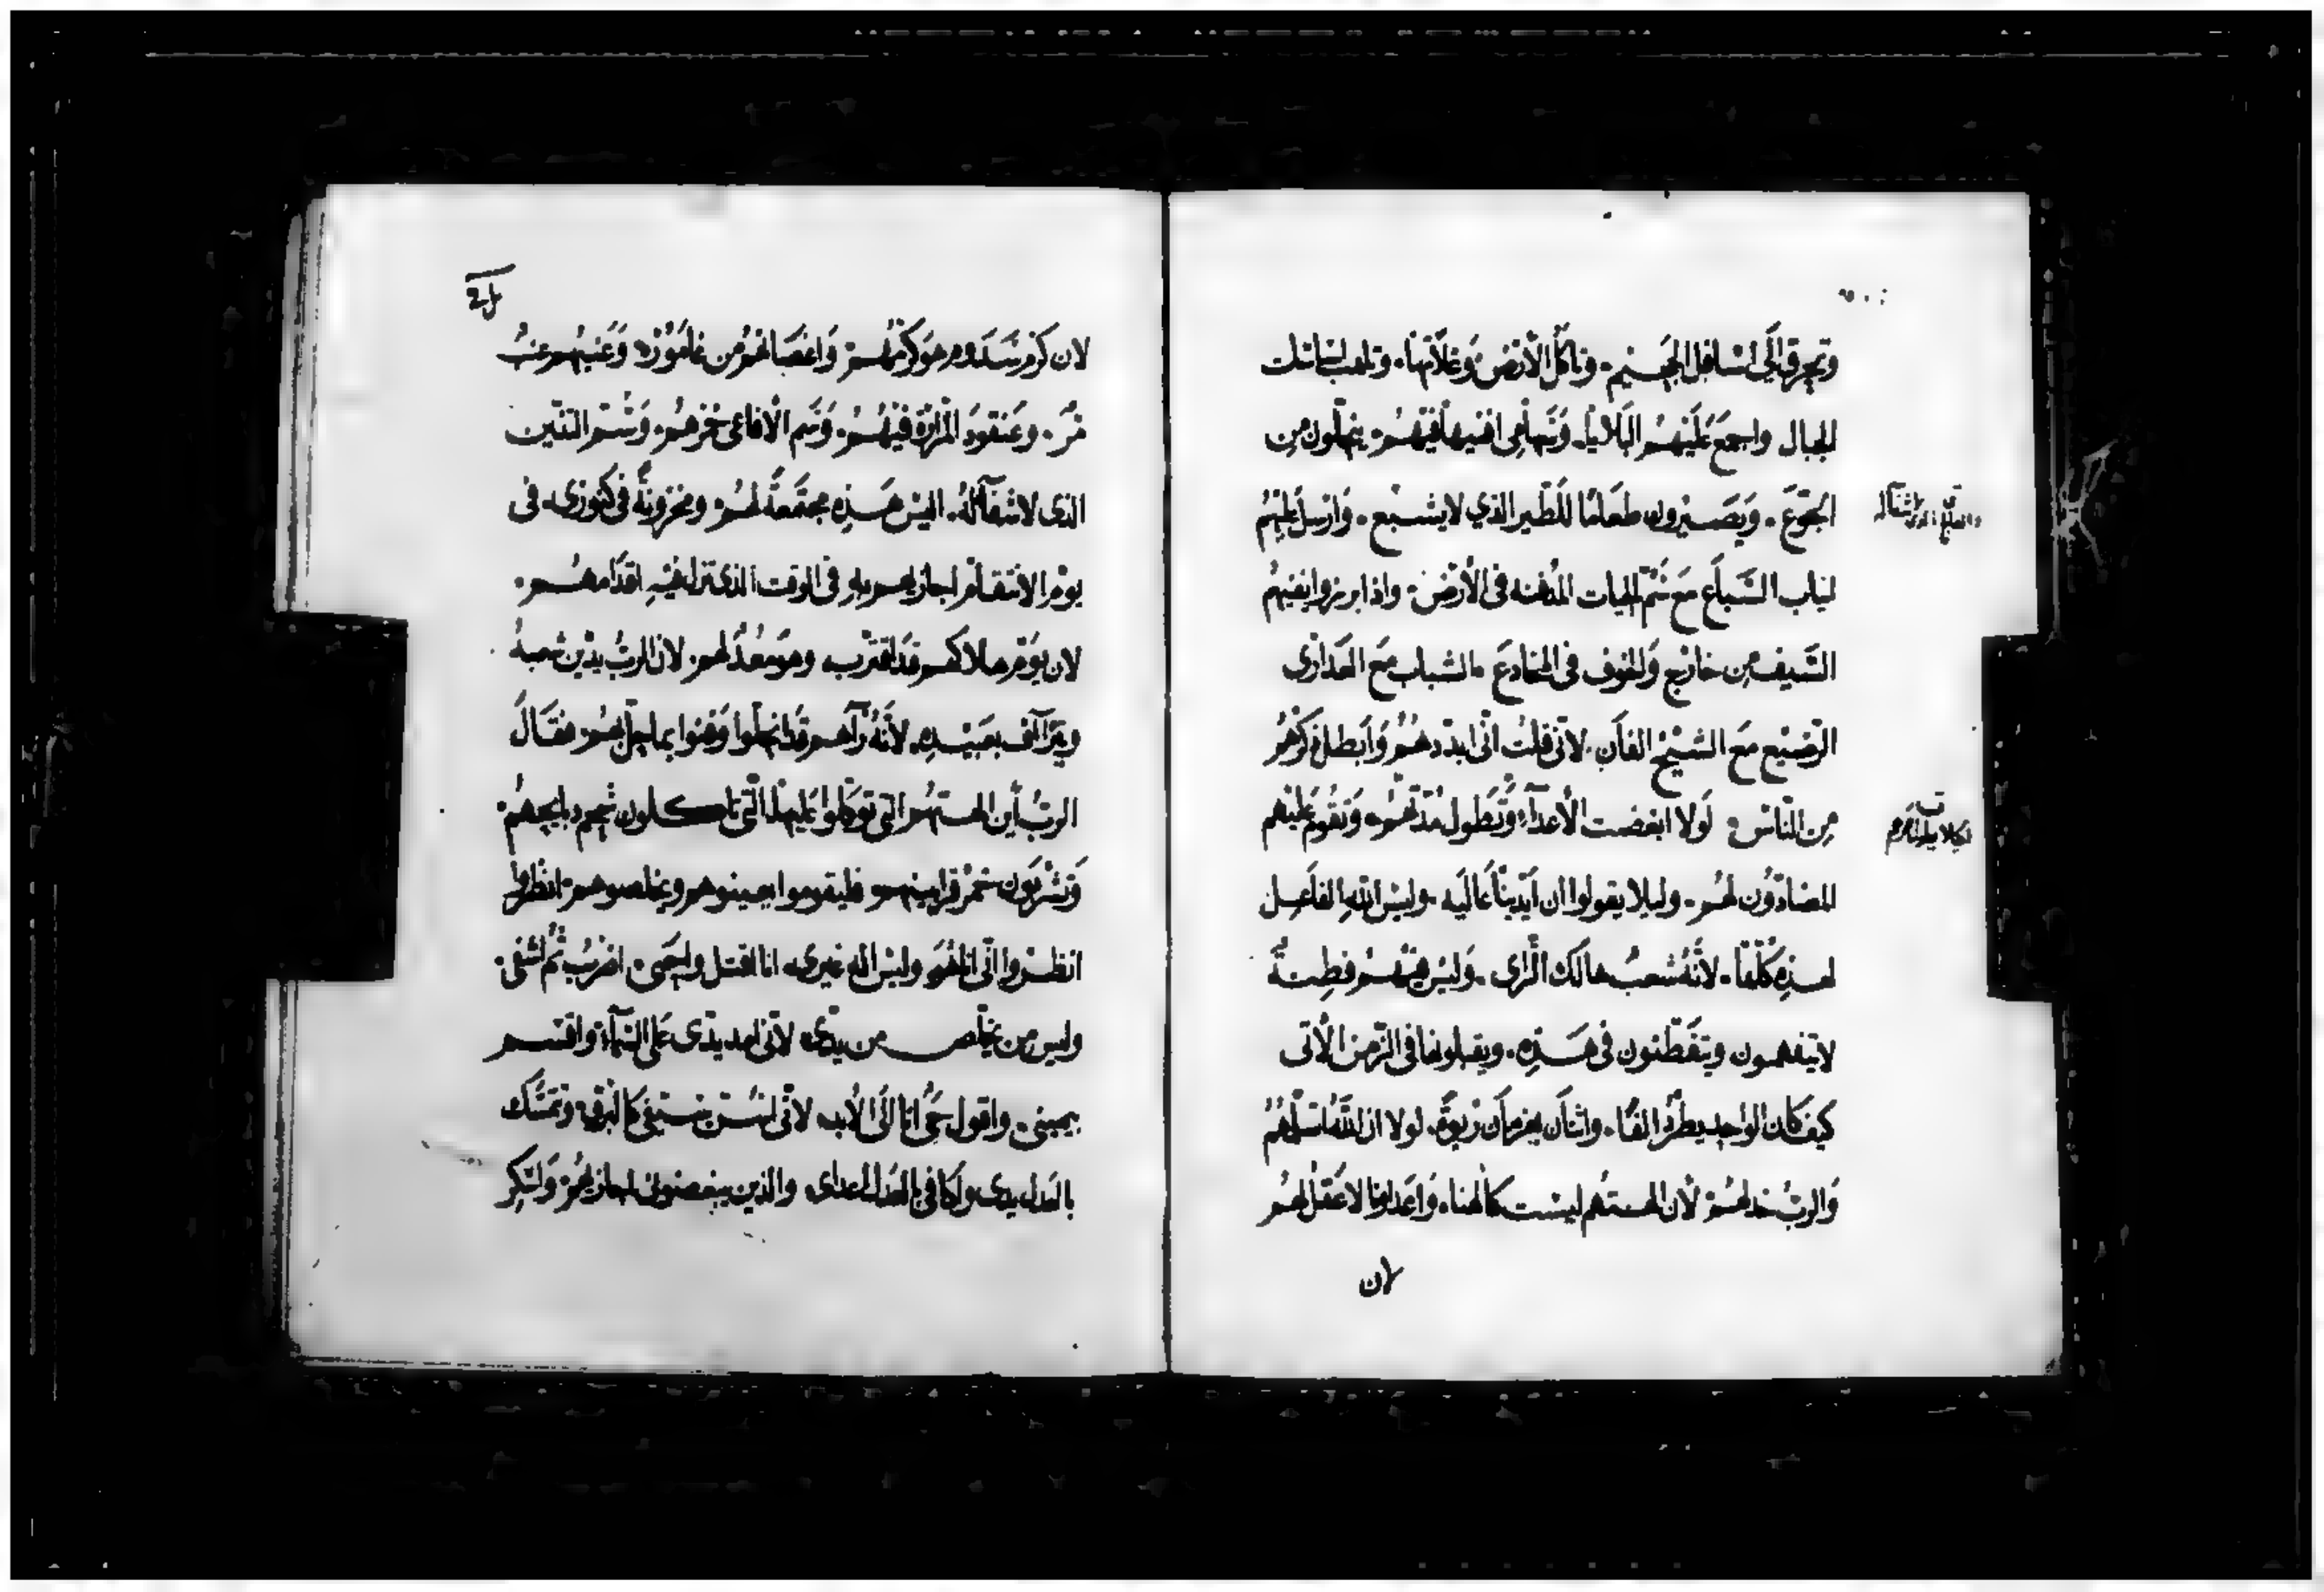 وتحرق الَي اسَافل الجَهَنيم. وتاكُل الأرَضْ وَغلاّتهَا. وتلهب اسَاسَات
الجبال واجمَع عَليَهمُ البَلايَا. وَسَهامِى افنيهَا فيَهمُ. ينحلون مِن
الجَوُعَ. وَيَصَيرون طعَامًا للطَير الذي لا يشبع. وَارْسل عليَهُم
انياب السَّباَع مَع سُم الحيات المدفنه فى الأرَض. واذا برزوا يفنيهُم
السَّيف مِن خارَج وَالخوف فى المخادعَ. الشباب مَع العَذارَى
الرَضيْع مَع الشيَخ الفاَن. لانى قلت انّى ابدّدهُمُ وَاَبطل ذكرهُمُ
مِن النّاسْ. لوَلا ابغضت الأعداَء وَتُطول مُدّتهُمُ. وَتقُوم عَليْهم
المضادّوُن لهُمُ. وليلا يقولوا ان اَيدينَا عَاليَه. وليسَ الله الفاَعل
لهذِه كُلّها. لأنّهُ شعبُ هالك الرَّاى. وَليسَ فيَهمُ فطِنةً
لا يتفهمون ويتفَطنون فى هَذِه. ويقبلونها فى الزّمن الآتى
كيف كان الواحِد يطردُ الفًا. واثنان يهزمَان رَبوةً. لولا ان الله اسَلمهُم
وَالربُ خذلهمُ لأن الهتهُم ليسَت كالهنا. وَاعَداونا لا عَقل لهمُ
لان
لان كرْم سَدَوم هوَ كرْمُهمُ. وَاغصَانهُمُ من غامَوُرَه. وَعنبهُم عنبُ
مُرّ. وعَنقودَ المرَارَة فيَهُمُ. وَسَم الأفاعى خمرهُمُ. وَسُم التنّين
الذى لا شفآ لهُ. اليسَ هَذِه مجتمَعةً لهُمُ. ومخزونةً فى كنوزى. فى
يوَم الانتقام اجازيهم به فى الوقت الذى تزل فيَهِ اقدَامهُم.
لان يوَم هلاكهم قدَ اقترب. وهو مَعُدّ لهم. لان الربُ يدْين شعبهُ
ويَتراَاَف بعَبيدِه. لأنّهُ رَآهم قدَ انحلّوا وَفنوا بما حلّ بهُم. فقاَلَ
الربُ أين الهتهُمُ التي توَكلوا عَليهَا الّتى تاكلون شحوم ذبايحهُم.
وَتشْربوَن خمر قرابينهم فليقوموا يعينوهم ويخلصوهم. انظروا
انظروا انّى انا هُوَ وليسَ اله غيرى. انا اقتل واحيى. اضرَبُ ثمُ اشفى.
وليس من يخلص من يدّى. لانّى امد يدّى عَلى السَّمآء. واقسم
بيمينى. واقول حَيُّ انا الَى الأبد. لانّى اسُن سَيفى كالبرق. وتتمَسَّك
بالعَدل يدى. واكافى بالعَدل اعداى. والذين يبغضونى اجازيهُم. وَاسَكِر